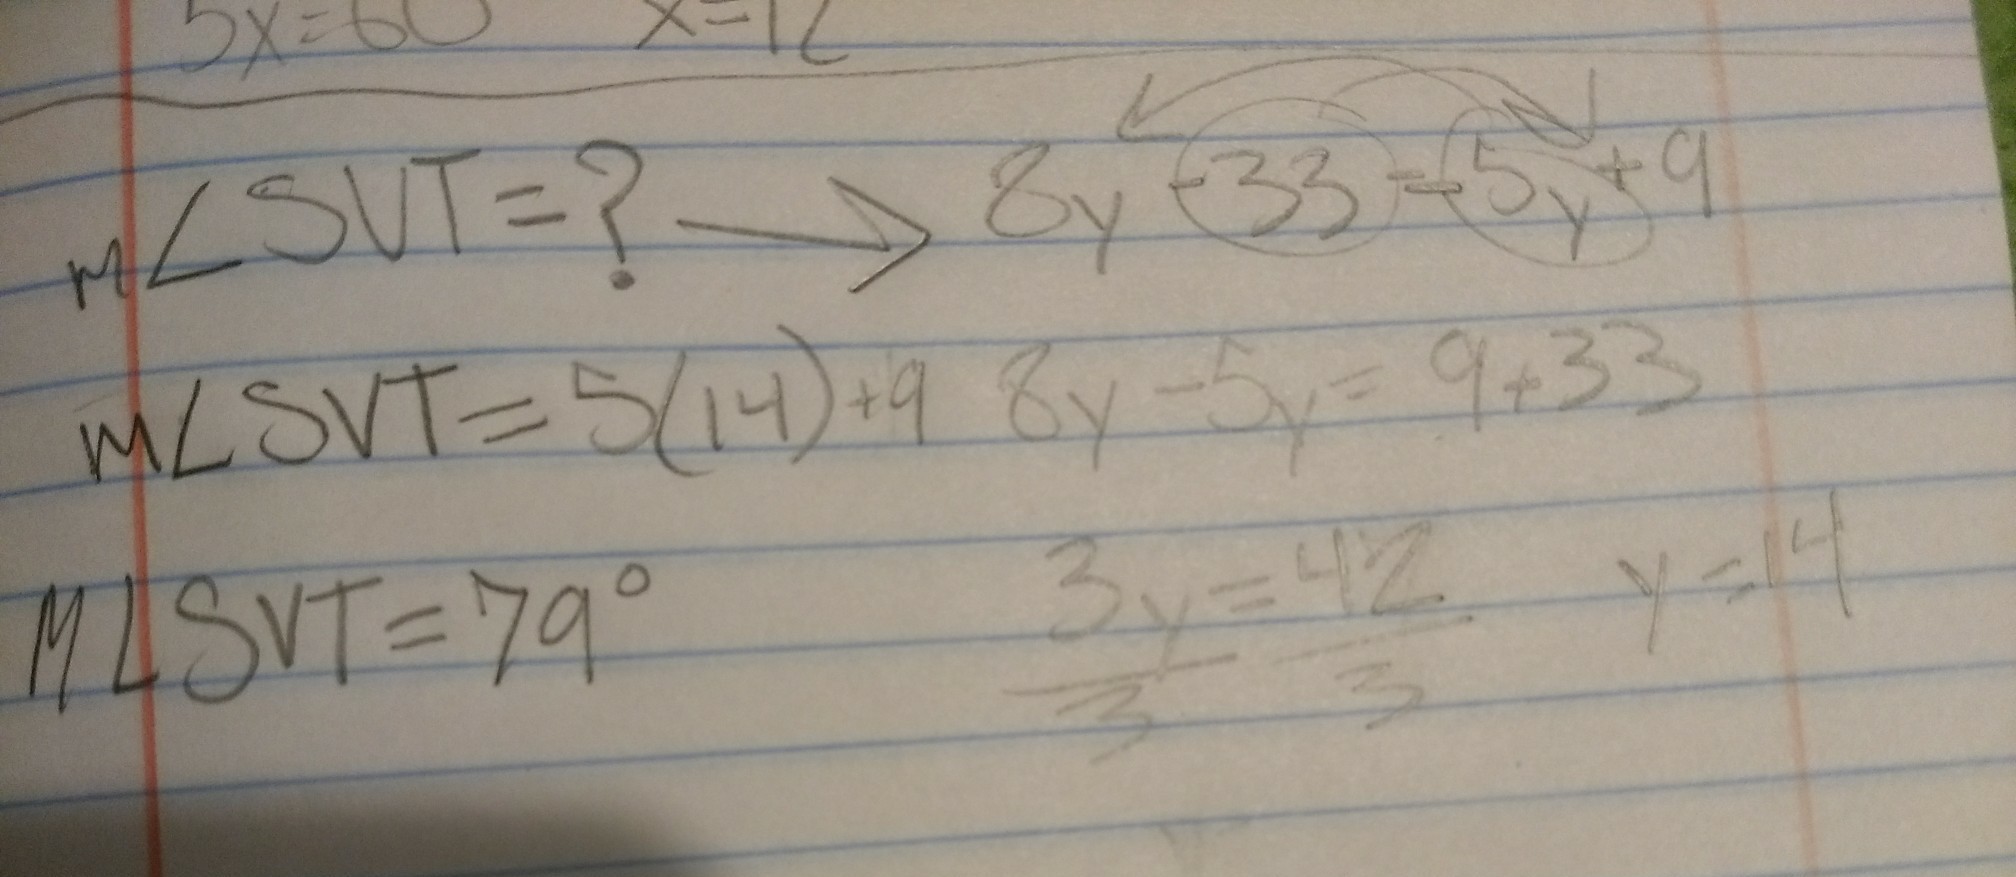 5x=60 x=12
m∠SVT=? → 8y-33=5y+9
m∠SVT=5(14)+9 8y-5y=9+33
3y=42 y=14
m∠SVT=79°
3 3